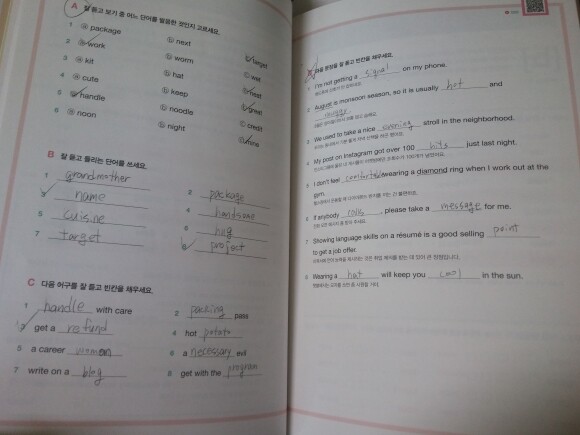 A 잘 듣고 보기 중 어느 단어를 발음한 것인지 고르세요.
1 ⓐ package ⓑ next target
2 ⓐ work ⓑ worm ⓒ wet
3 ⓐ kit ⓑ hat heat
4 ⓐ cute ⓑ keep greet
5 ⓐ handle ⓑ noodle ⓒ crest
6 ⓐ noon ⓑ night mine
B 잘 듣고 들리는 단어를 쓰세요.
1 grandmother 2 package
3 name 4 handsome
5 cuisine 6 hug
7 target 8 project
C 다음 어구를 잘 듣고 빈칸을 채우세요.
1 handle with care 2 parking pass
3 get a refund 4 hot potato
5 a career women 6 a necessary evil
7 write on a blog 8 get with the program
다음 문장을 잘 듣고 빈칸을 채우세요.
1 I'm not getting a signal on my phone.
2 August is monsoon season, so it is usually hot and
3 We used to take a nice evening stroll in the neighborhood.
4 My post on Instagram got over 100 hits just last night.
5 I don't feel comforted wearing a diamond ring when I work out at the
gym.
6 If anybody calls, please take a message for me.
7 Showing language skills on a résumé is a good selling point
to get a job offer.
8 Wearing a hat will keep you cool in the sun.